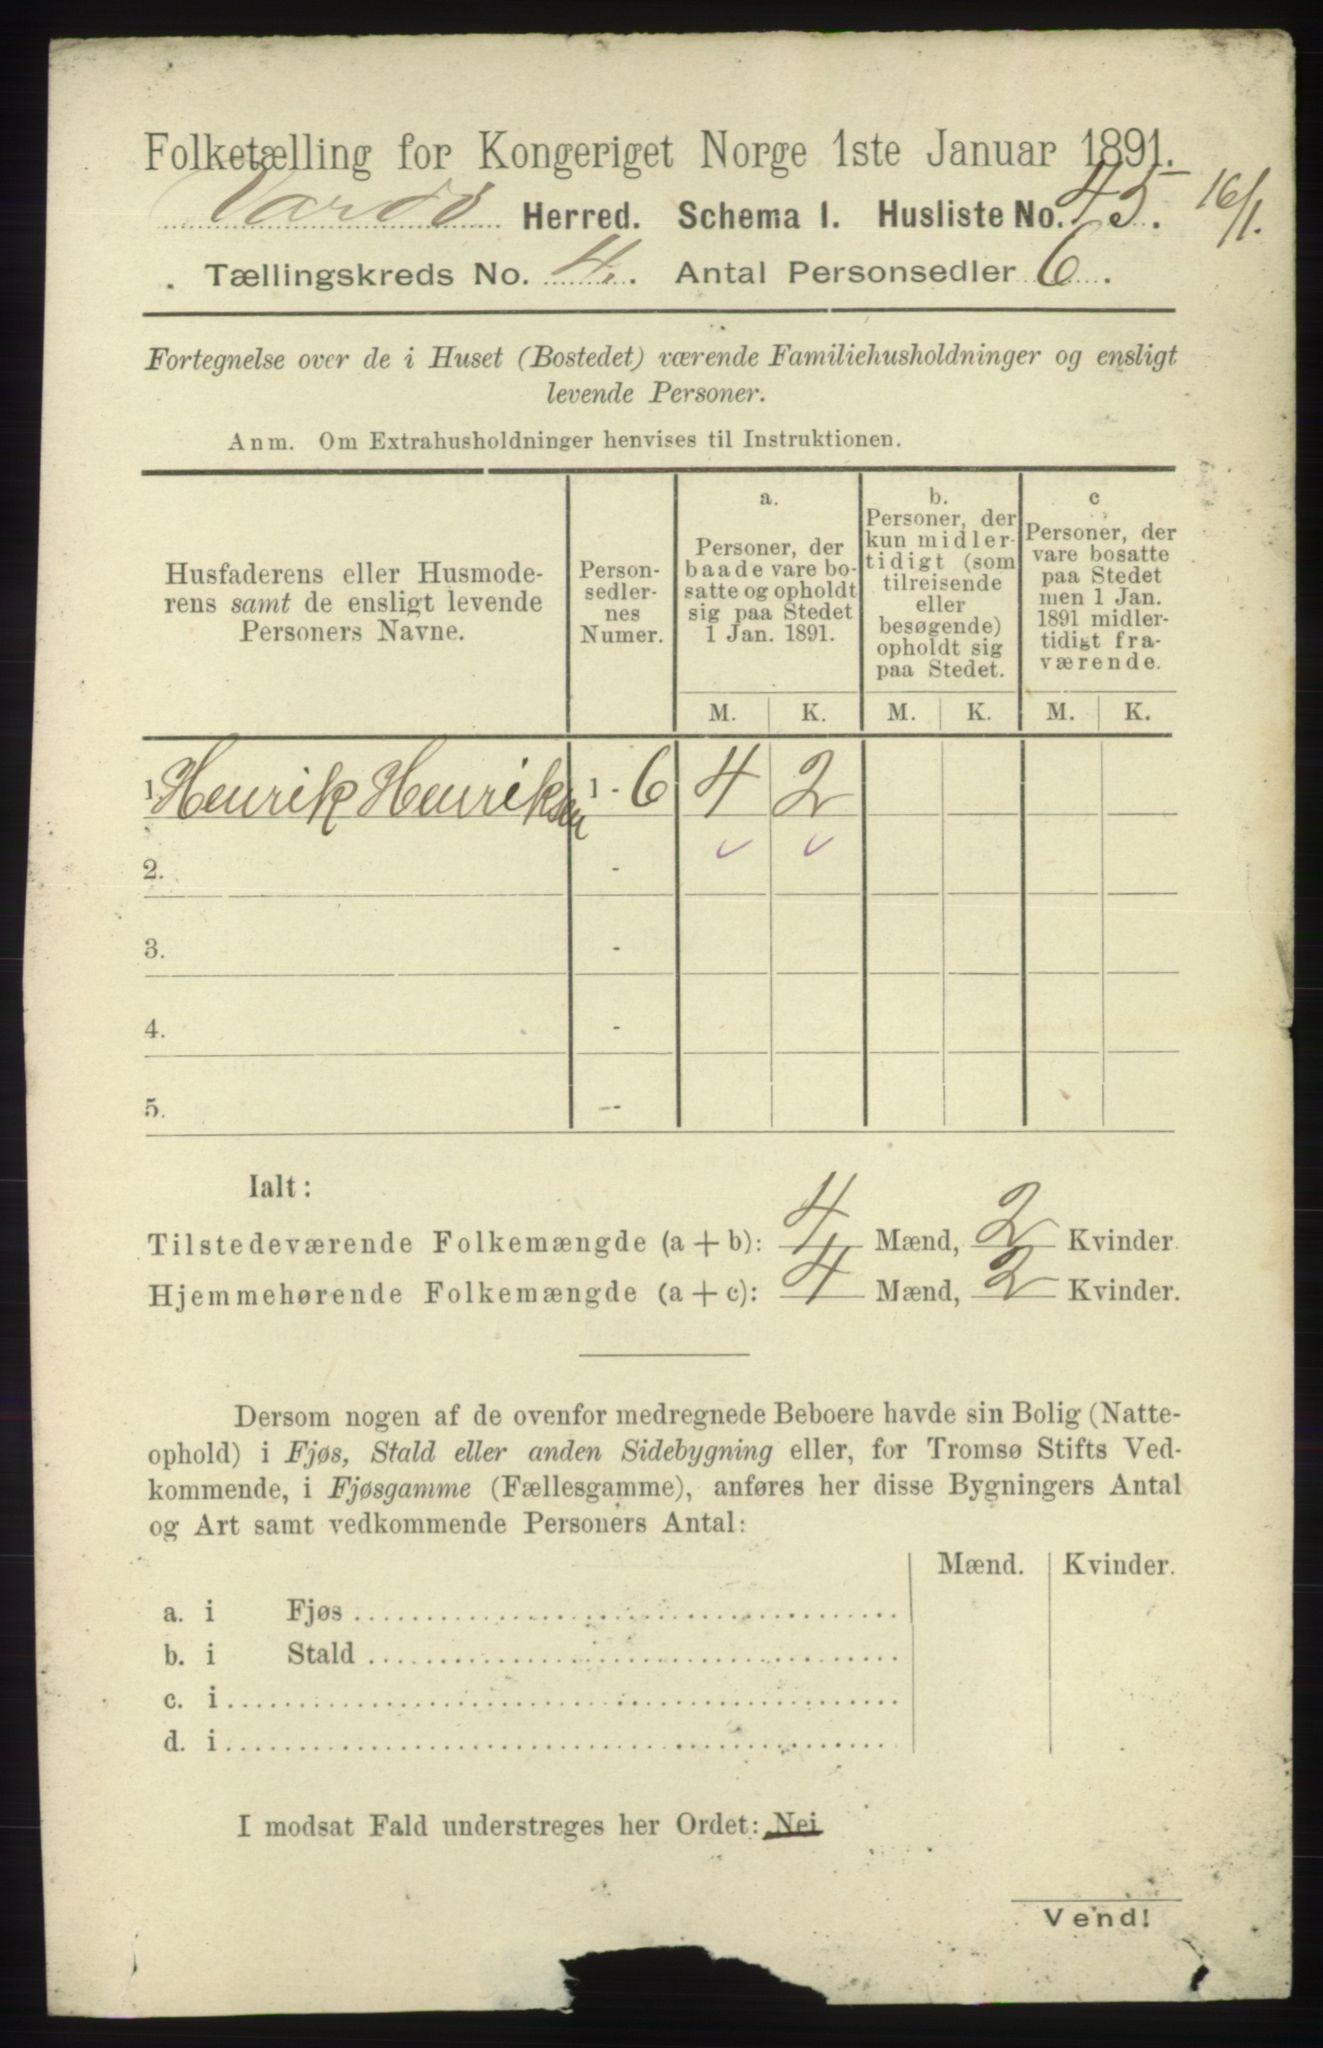 Folketælling for Kongeriget Norge 1ste Januar 1891.
Vardø Herred. Schema I. Husliste No. 45. 16/1.
Tællingskreds No. 4. Antal Personsedler 6.
Fortegnelse over de i Huset (Bostedet) værende Familiehusholdninger og ensligt
levende Personer.
Anm. Om Extrahusholdninger henvises til Instruktionen.
Husfaderens eller Husmode-
rens samt de ensligt levende
Personers Navne.
Person-
sedler-
nes
Numer.
a.
Personer, der
baade vare bo-
satte og opholdt
sig paa Stedet
1 Jan. 1891.
b.
Personer, der
kun midler-
tidigt (som
tilreisende
eller
besøgende)
opholdt sig
paa Stedet.
c
Personer, der
vare bosatte
paa Stedet
men 1 Jan.
1891 midler-
tidigt fra-
værende.
M. K. M. K. M. K.
1 Henrik Henriksen 1 - 6 4 2
2. -
3. -
4. -
5. --
Ialt:
Tilstedeværende Folkemængde (a + b): 4 Mænd, 2 Kvinder.
Hjemmehørende Folkemængde (a + c): 4 Mænd, 2 Kvinder.
Dersom nogen af de ovenfor medregnede Beboere havde sin Bolig (Natte-
ophold) i Fjøs, Stald eller anden Sidebygning eller, for Tromsø Stifts Ved-
kommende, i Fjøsgamme (Fællesgamme), anføres her disse Bygningers Antal
og Art samt vedkommende Personers Antal:
Mænd. Kvinder.
a. i Fjøs
b. i Stald
c. i
d. i
I modsat Fald understreges her Ordet: Nei
Vend!